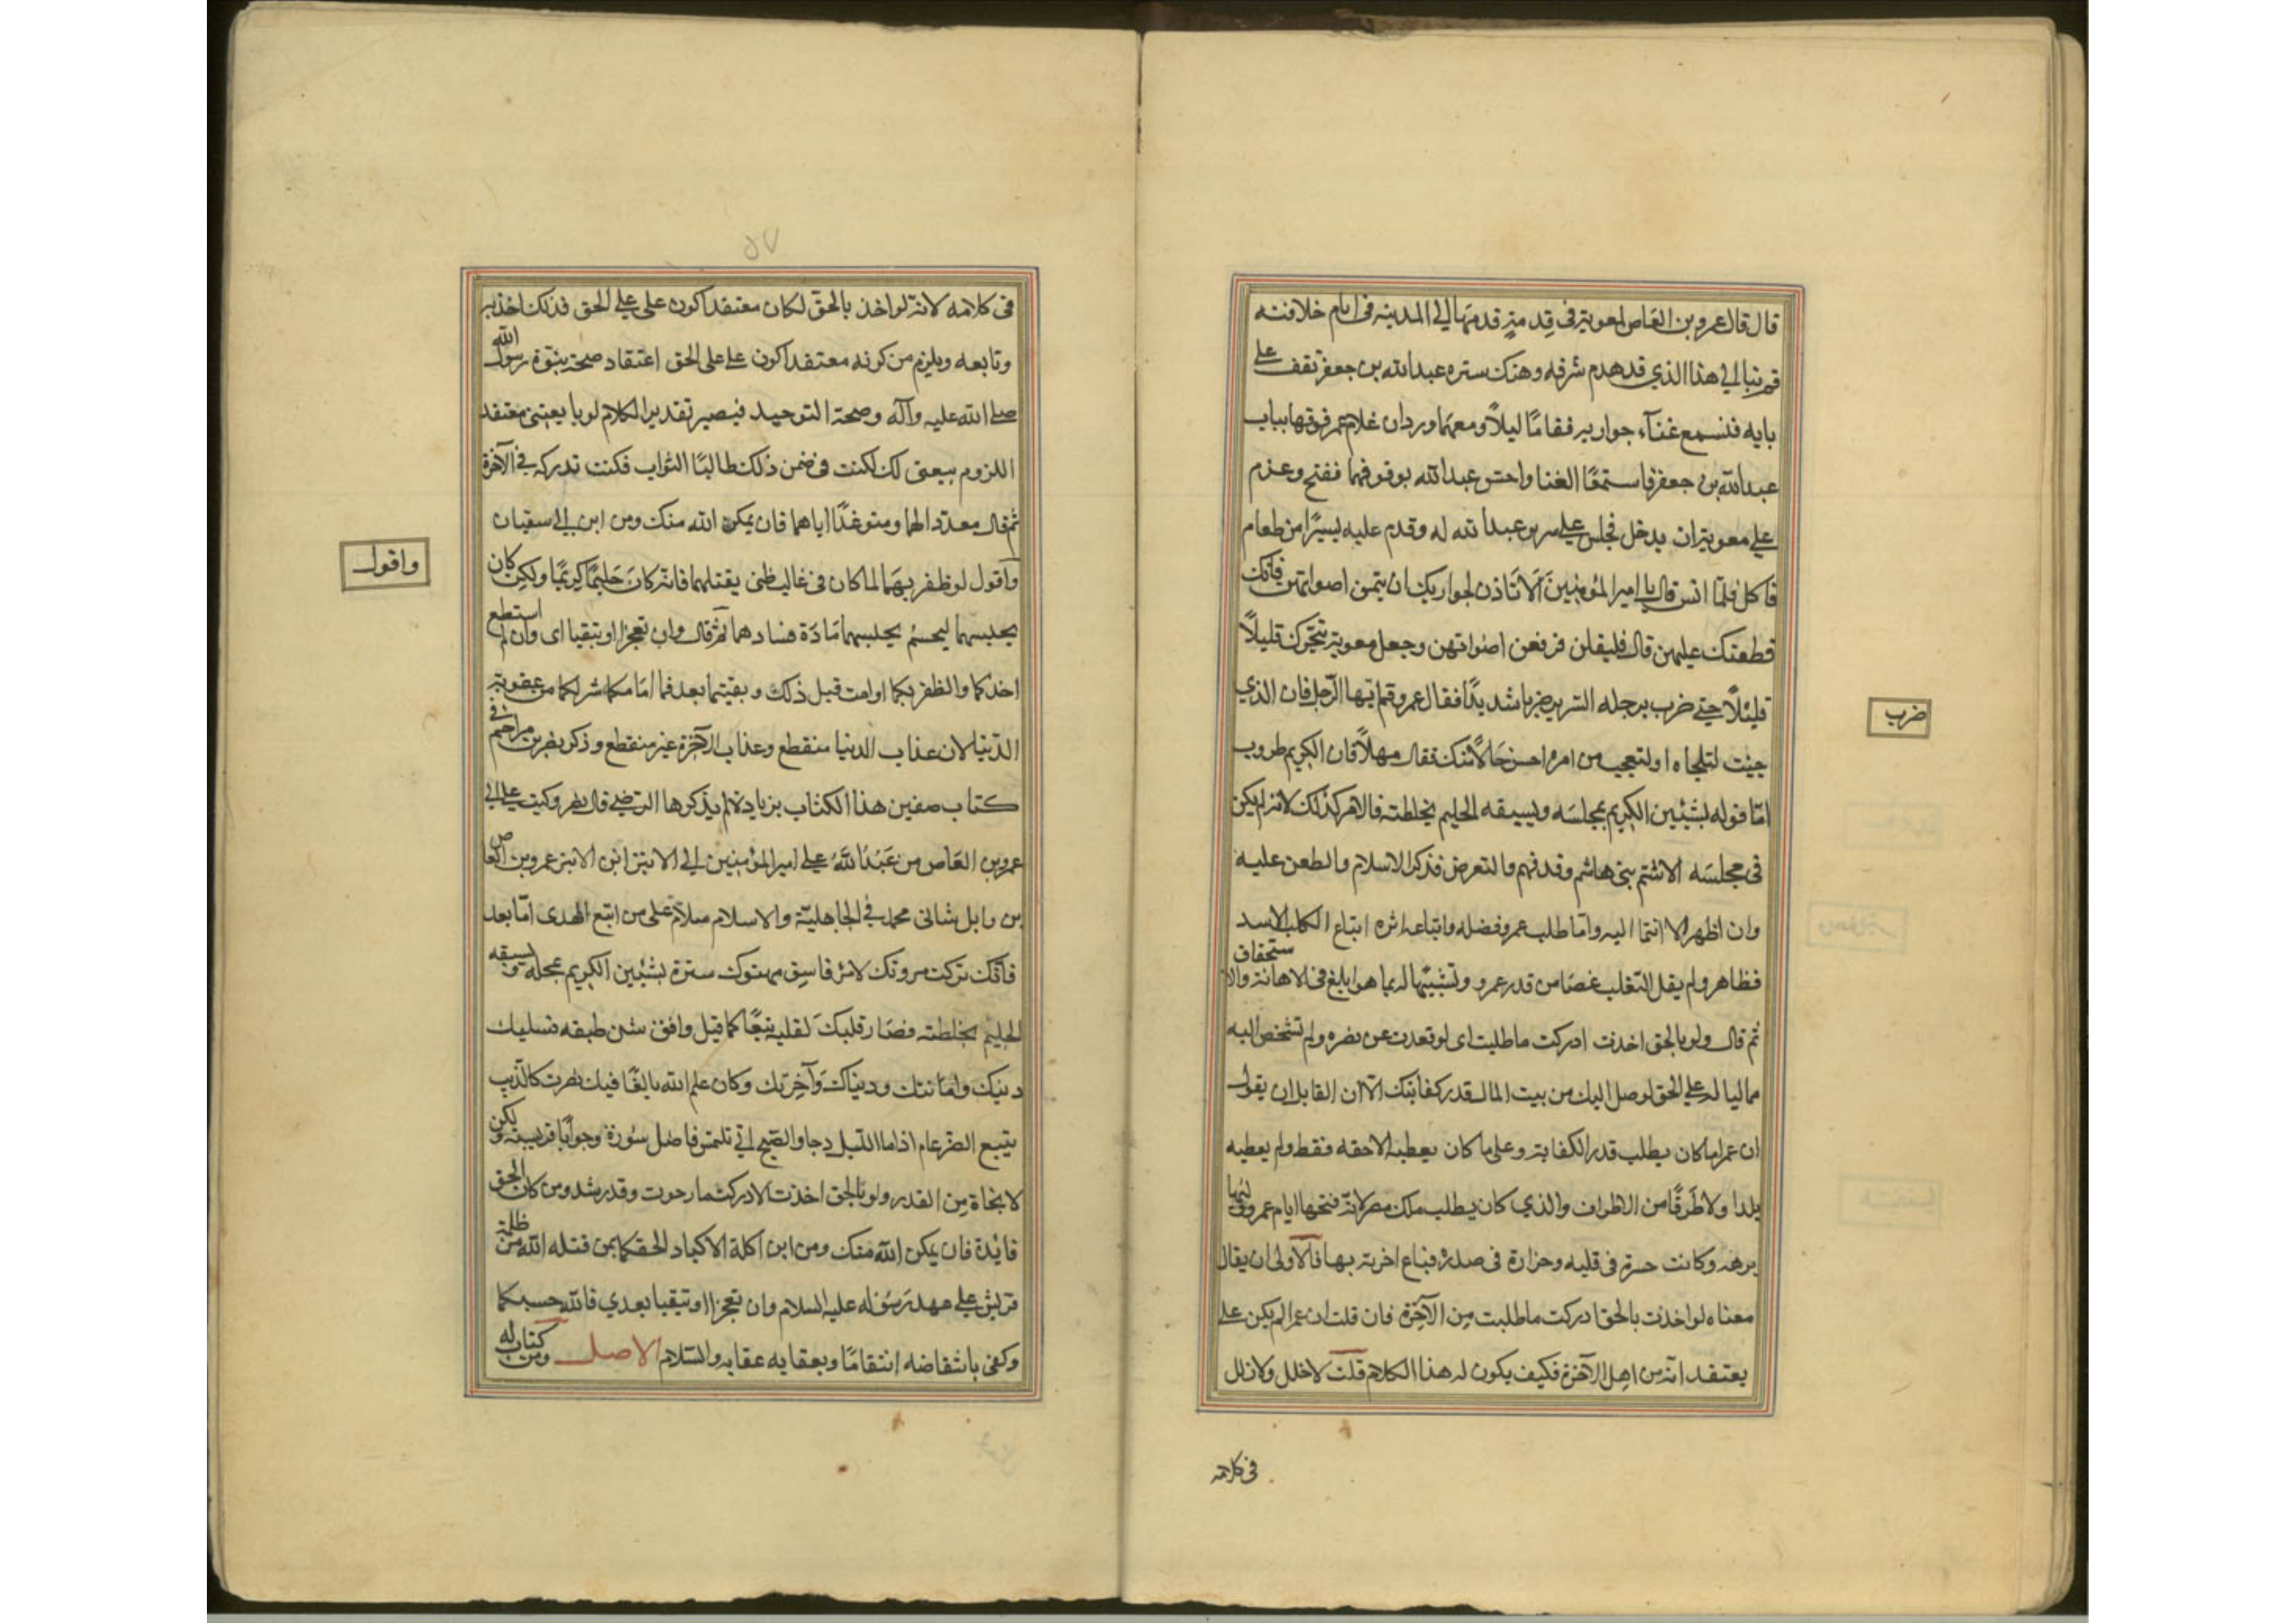 قال قال عمرو بن العاص لمعوية فى قدمة قدمها الى المدينة فى ايام خلافته
قم بنا الى هذا الذي قد هدم شرفه وهتك ستره عبد الله بن جعفر نقف على
بابه فنسمع غناء جواريه فقاما ليلًا ومعهما وردان غلام عمرو بباب
عبد الله بن جعفر فاستمعا الغنا واحس عبد الله بوقوفهما ففتح وعزم
على معوية ان يدخل فجلس على سرير عبد الله له وقدم عليه يسيرًا من طعام
فاكل فلما انس قال يا امير المؤمنين ألا تأذن لجواريك ان يتممن اصواتهن فانك
قطعتك عليهن قال فليقلن فرفعن اصواتهن وجعل معوية يتحرك قليلًا
قليلًا حتى ضرب برجله السرير ضربا شديدًا فقال عمرو قم ايها الرجل فان الذي
ضرب
جئت لتلحاه او لتعجب من امره احسن حالًا منك فقال مهلًا فان الكريم طروب
امّا قوله يشين الكريم بمجلسه ويسفه الحليم بخلطته فالامر كذلك لانه لم يكن
فى مجلسه الا شتم بنى هاشم وقذفهم والتعرض بذكر الاسلام والطعن عليه
وان اظهر الانتما اليه وامّا طلب عمرو فضله واتباعه اثره اتباع الكلب للاسد
فظاهر ولم يقل الثعلب غضًا من قدر عمرو وتشبيهًا له بما هو ابلغ فى الاهانة والاستخفاف
ثم قال ولو بالحق اخذت ادركت ما طلبت اى لو قعدت عن نصره ولم تشخص اليه
مماليا له على الحق لوصل اليك من بيت المال قدر كفايتك الا ان القايل ان يقول
ان عمرا ما كان يطلب قدر الكفاية وعلى ما كان يعطيه الا حقه فقط ولم يعطيه
بلدا ولا طرفًا من الاطراف والذي كان يطلب ملك مصر لانه فتحها ايام عمر ووليها
برهة وكانت حسرة فى قلبه وحزازة فى صدره فباع اخرته بها فالاولى ان يقال
معناه لو اخذت بالحق ادركت ما طلبت من الآخرة فان قلت ان عمرا لم يكن على
يعتقد انه من اهل الآخرة فكيف يكون له هذا الكلام قلت لا خلل ولا زلل
فى كلامه
۵۷
فى كلامه لانه لو اخذ بالحق لكان معتقدا كون على على الحق فذلك اخذ به
وتابعه ويلزم من كونه معتقدا كون على على الحق اعتقاد صحة نبوة رسول الله
صلى الله عليه وآله وصحة التوحيد فيصير تقدير الكلام لو بايعتنى معتقد
اللزوم بيعتى لك لكنت فى ضمن ذلك طالبًا الثواب فكنت تدركه فى الآخرة
ثم قال مهددا لهما ومتوعدًا اياهما فان يمكن الله منك ومن ابن ابى سفيان
واقول
واقول لو ظفر بهما لما كان فى غالب ظنى يقتلهما فانه كان حليمًا كريمًا ولكن كان
يحبسهما ليحسم بحبسهما مادة فسادهما ثم قال وان تعجزا وتبقيا اى وان لم استطع
اخذكما والظفر بكما او امت قبل ذلك وبقيتما بعد فما امامكما شر لكما من عقوبة
الدنيا لان عذاب الدنيا منقطع وعذاب الآخرة غير منقطع وذكر نصر بن مزاحم فى
كتاب صفين هذا الكتاب بزيادة لم يذكرها الرضى قال نصر وكتب على الى
عمرو بن العاص من عبد الله على امير المؤمنين الى الابتر ابن الابتر عمرو بن العاص
بن وايل شانى محمد فى الجاهلية والاسلام سلام على من اتبع الهدى امّا بعد
فانك تركت مروتك لامرئ فاسق مهتوك ستره يشين الكريم بمجلسه ويسفه
الحليم بخلطته فصار قلبك لقلبه تبعًا كما قيل وافق شن طبقه فسلبك
دينك وامانتك ودنياك وآخرتك وكان علم الله بالغًا فيك فصرت كالذيب
يتبع الضرغام اذا ما الليل دجا والصبح اتى يلتمس فاضل سؤره وحوايا فريسته ولكن
لا نجاة من القدر ولو بالحق اخذت لادركت ما رجوت وقد رشد من كان الحق
قائده فان يمكن الله منك ومن ابن آكلة الاكباد الحقكما بمن قتله الله من ظلمة
قريش على عهد رسول الله عليه السلام وان تعجزا وتبقيا بعدي فالله حسبكما
وكفى بانتقامه انتقامًا وبعقابه عقابه والسلام الاصل ومن كتاب له